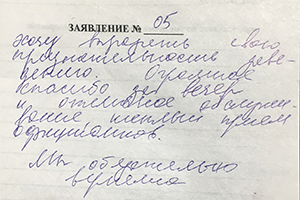 ЗАЯВЛЕНИЕ № 05
Хочу выразить свою
признательность
Огромное
спасибо за вечер
и отличное обслужи
вание теплый прием
официантов.
Мы обязательно
вернемся